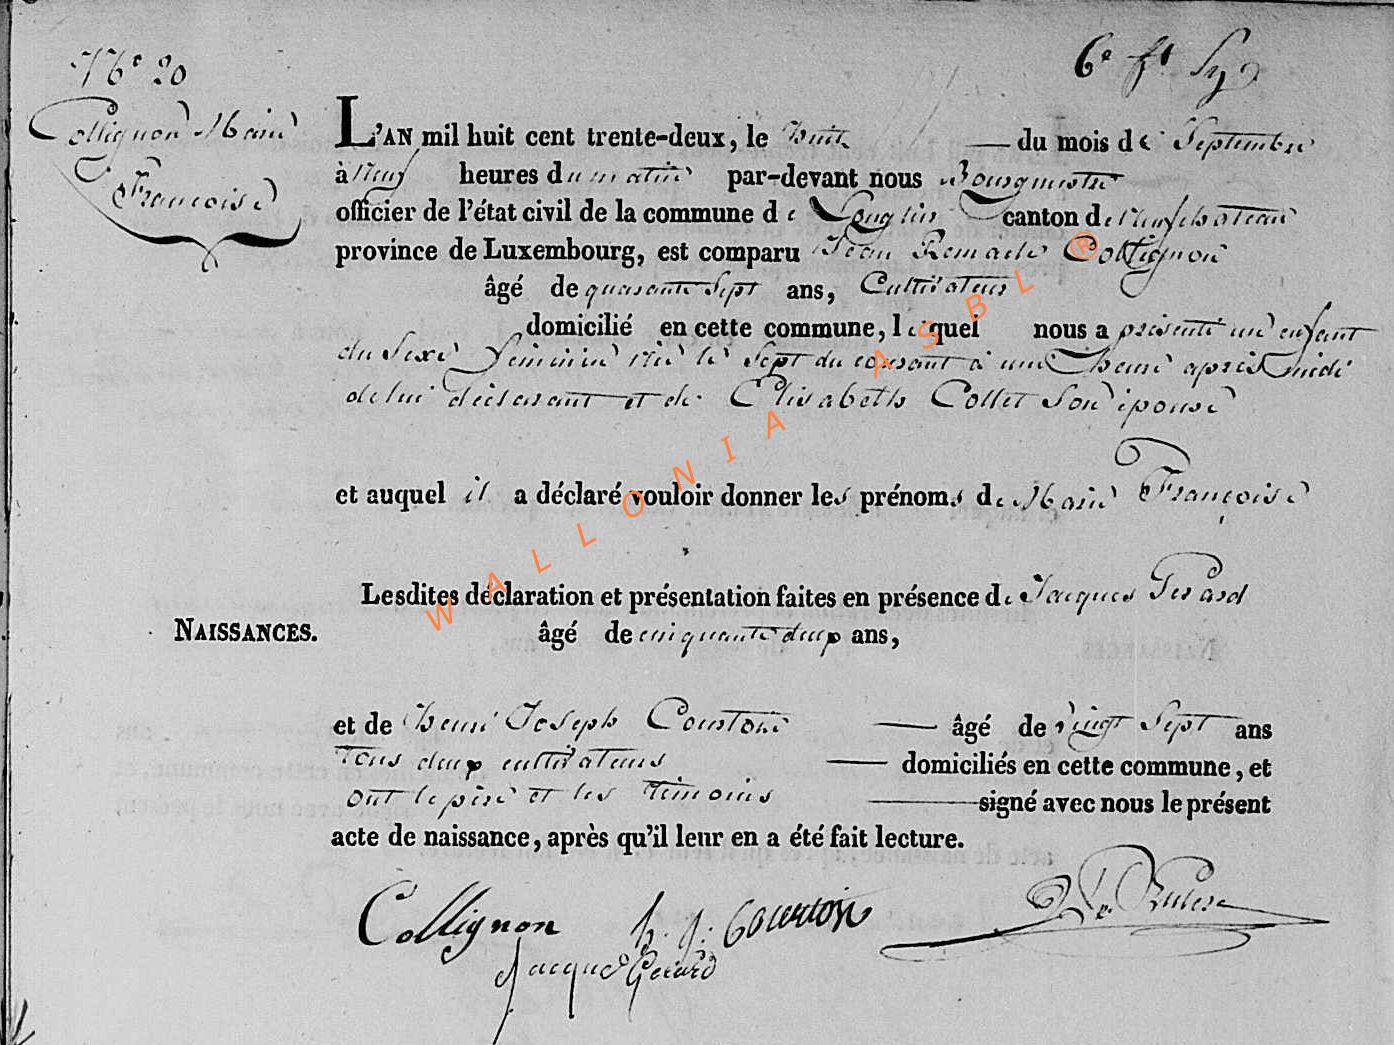 N° 20
6e ft
Collignon Marie
Françoise
L'AN mil huit cent trente-deux, le huit du mois de Septembre
à neuf heures du matin par-devant nous Bourgmestre
officier de l'état civil de la commune de Longlier canton de Neufchateau
province de Luxembourg, est comparu Jean Remacle Collignon
âgé de quarante Sept ans, Cultivateur
domicilié en cette commune, lequel nous a présenté un enfant
du Sexe feminin née le Sept du courant à une heure après midi
de lui déclarant et de Elisabeth Collet Son épouse
et auquel il a déclaré vouloir donner les prénoms de Marie Françoise
Lesdites déclaration et présentation faites en présence de Jacques Gerard
NAISSANCES.
âgé de cinquante deux ans,
et de henri Joseph Courtois âgé de vingt Sept ans
Tous deux cultivateurs domiciliés en cette commune, et
ont le père et les témoins signé avec nous le présent
acte de naissance, après qu'il leur en a été fait lecture.
Collignon h. j. Courtois
Jacques Gerard
WALLONIA ASBL ®